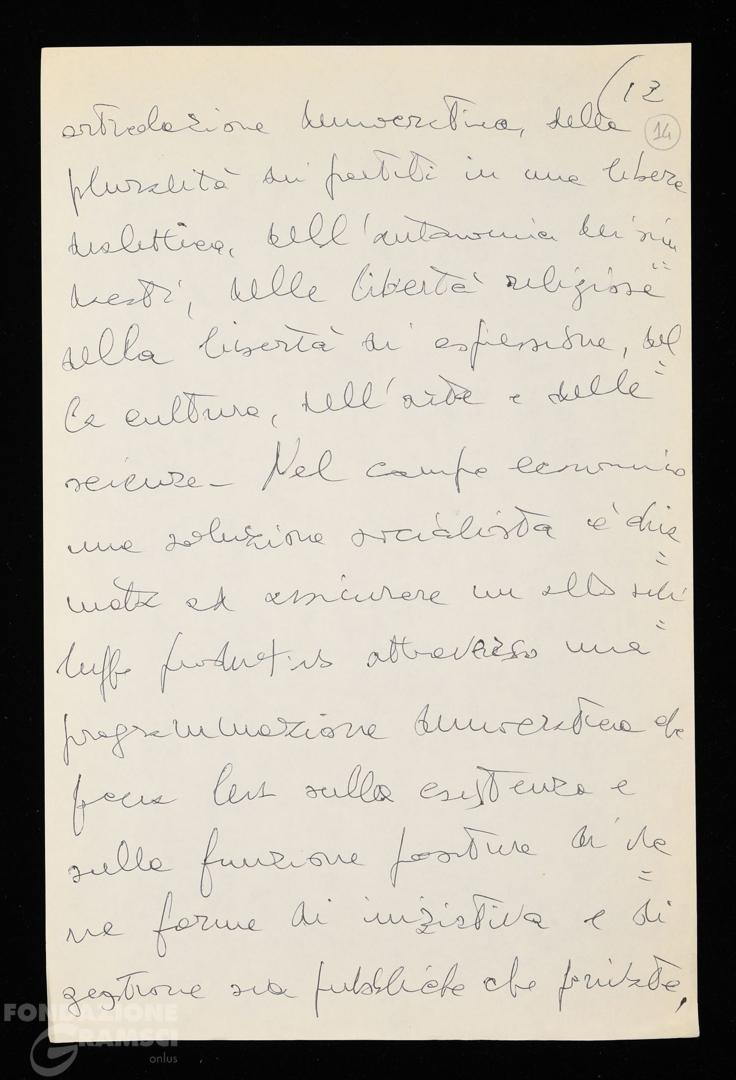 (12
14
articolazione democratica, della
pluralità dei partiti in una libera
dialettica, dell'autonomia dei sin=
dacati, delle libertà religiose
della libertà di espressione, del=
la cultura, dell'arte e delle
scienze – Nel campo economico
una soluzione socialista è chia=
mata ad assicurare un alto svi=
luppo produttivo attraverso una
programmazione democratica che
faccia leva sulla esistenza e
sulla funzione positiva di va=
rie forme di iniziativa e di
gestione sia pubbliche che private,
FONDAZIONE
GRAMSCI
onlus